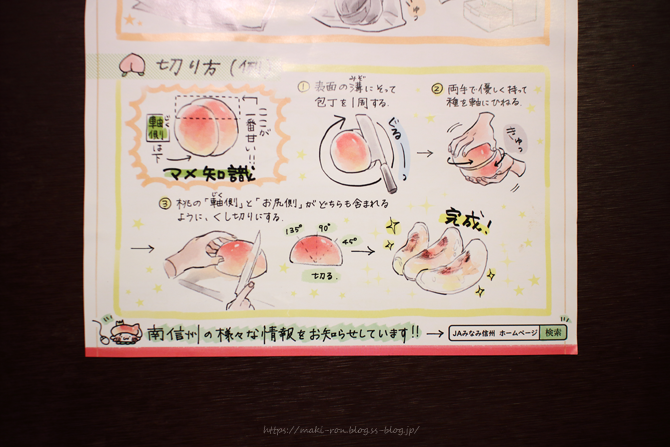 切り方(例)
ここが
一番甘い!!
軸側
じく
は
下
マメ知識
① 表面の溝にそって
みぞ
包丁を1周する.
ぐるっ
② 両手で優しく持って
種を軸にひねる.
ぎゅっ
③ 桃の「軸側」と「お尻側」がどちらも含まれる
じく
ように、くし切りにする.
135° 90° 45°
切る.
完成!
南信州の様々な情報をお知らせしています!!
JAみなみ信州 ホームページ 検索
https://maki-ron.blog.ss-blog.jp/